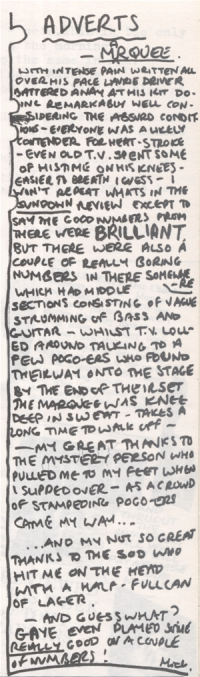 ADVERTS
- MARQUEE.
WITH INTENSE PAIN WRITTEN ALL
OVER HIS FACE LAURIE DRIVER
BATTERED AWAY AT HIS KIT DO-
ING REMARKABLY WELL CON-
SIDERING THE ABSURD CONDIT-
IONS - EVERYONE WAS A LIKELY
CONTENDER FOR HEAT-STROKE
- EVEN OLD T.V. SPENT SOME
OF HIS TIME ON HIS KNEES -
EASIER TO BREATH I GUESS - I
WON'T REPEAT WHATS IN THE
SUNDOWN REVIEW EXCEPT TO
SAY THE GOOD NUMBERS FROM
THERE WERE BRILLIANT
BUT THERE WERE ALSO A
COUPLE OF REALLY BORING
NUMBERS IN THERE SOMEWHE
-RE
WHICH HAD MIDDLE
SECTIONS CONSISTING OF VAGUE
STRUMMING OF BASS AND
GUITAR - WHILST T.V. LOLL-
ED AROUND TALKING TO A
FEW POGO-ERS WHO FOUND
THEIR WAY ONTO THE STAGE
BY THE END OF THEIR SET
THE MARQUEE WAS KNEE
DEEP IN SWEAT - TAKES A
LONG TIME TO WALK OFF -
- MY GREAT THANKS TO
THE MYSTERY PERSON WHO
PULLED ME TO MY FEET WHEN
I SLIPPED OVER - AS A CROWD
OF STAMPEDING POGO-ERS
CAME MY WAY...
...AND MY NOT SO GREAT
THANKS TO THE SOD WHO
HIT ME ON THE HEAD
WITH A HALF-FULL CAN
OF LAGER.
- AND GUESS WHAT?
GAYE EVEN PLAYED SOME
REALLY GOOD ON A COUPLE
OF NUMBERS!
Mick.